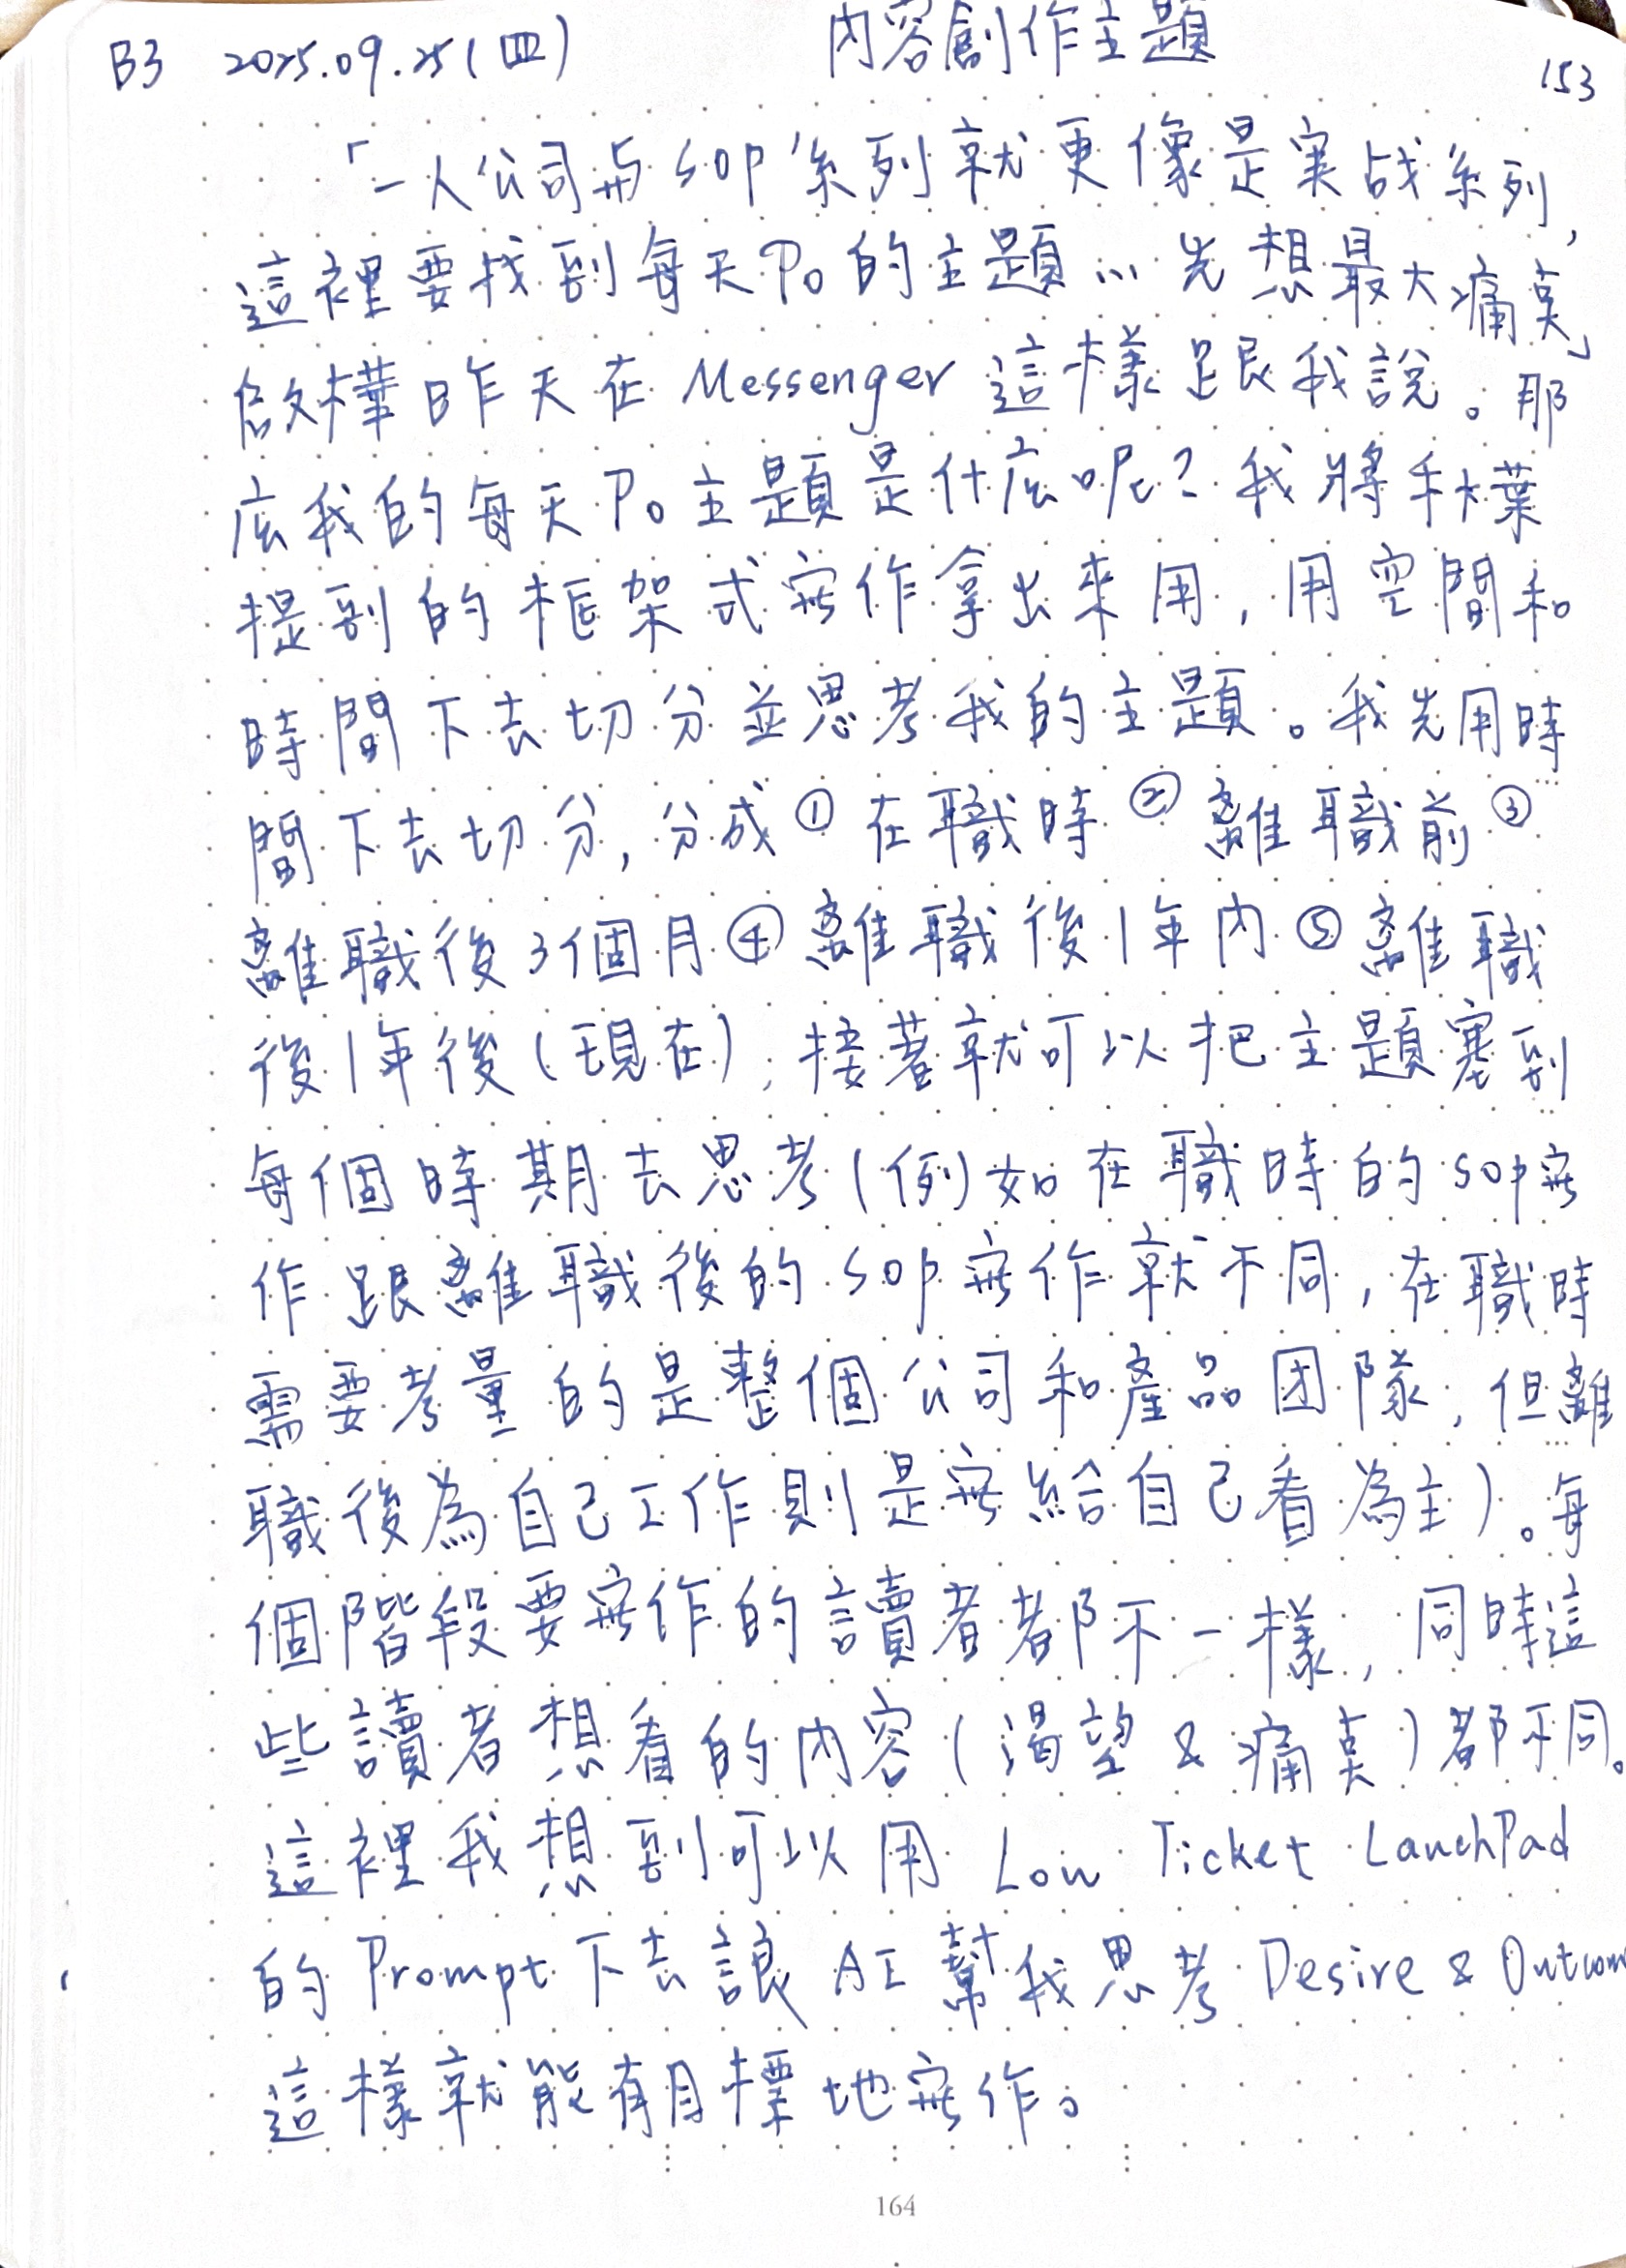 B3 2025.09.25(四) 內容創作主題 153
「一人公司与SOP系列就更像是実战系列,
這裡要找到每天Po的主題…先想最大痛点」
啟樺昨天在Messenger這樣跟我說。那
広我的每天Po主題是什広呢?我將千葉
提到的框架式寫作拿出來用,用空間和
時間下去切分並思考我的主題。我先用時
間下去切分,分成①在職時②離職前③
離職後3個月④離職後1年內⑤離職
後1年後(現在),接著就可以把主題塞到
每個時期去思考(例)如在職時的SOP寫
作跟離職後的SOP寫作就不同,在職時
需要考量的是整個公司和產品团隊,但離
職後為自己工作則是寫給自己看為主)。每
個階段要寫作的讀者都不一樣,同時這
些讀者想看的內容(渴望&痛点)都不同。
這裡我想到可以用Low Ticket LanchPad
的Prompt下去讓AI幫我思考Desire & Outcom
這樣就能有目標地寫作。
164